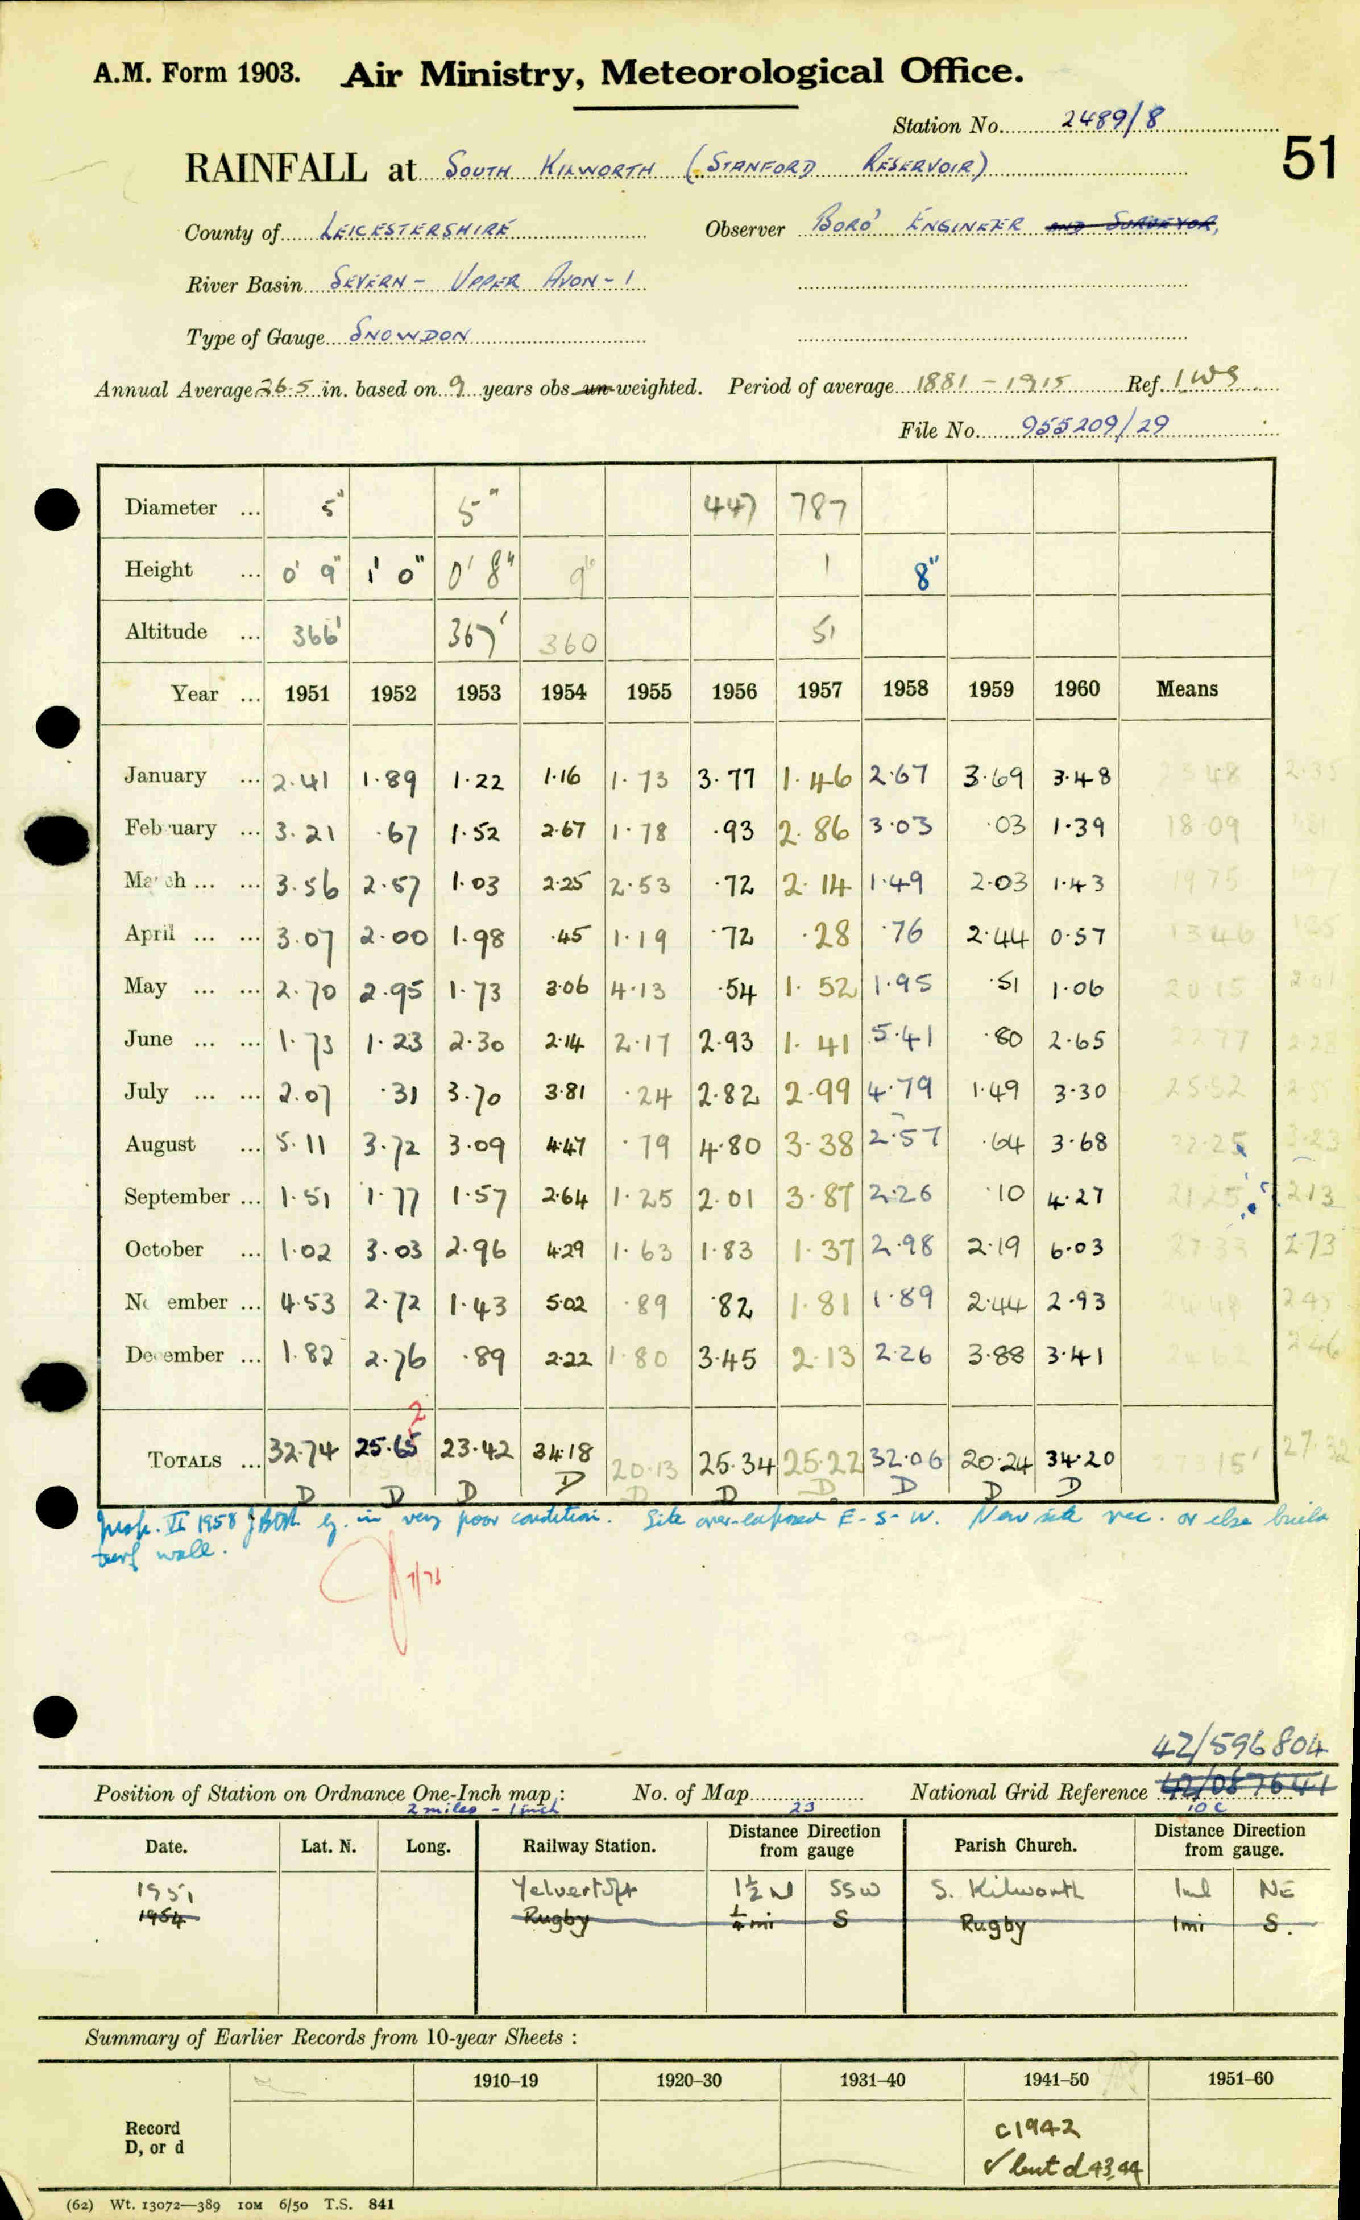 A.M. Form 1903. Air Ministry, Meteorological Office.
Station No. 2489/8
51
RAINFALL at SOUTH KILWORTH (STANFORD RESERVOIR)
County of LEICESTERSHIRE Observer BORO' ENGINEER AND SURVEYOR,
River Basin SEVERN - UPPER AVON - 1
Type of Gauge SNOWDON
Annual Average 26.5 in. based on 9 years obs un-weighted. Period of average 1881 - 1915 Ref. 1WS
File No. 955209/29
Diameter ... 5" 5" 447 787
Height ... 0' 9" 1' 0" 0' 8" 9" 1 8"
Altitude ... 366' 367' 360 51
Year ... 1951 1952 1953 1954 1955 1956 1957 1958 1959 1960 Means
January ... 2.41 1.89 1.22 1.16 1.73 3.77 1.46 2.67 3.69 3.48 23.48 2.35
February ... 3.21 .67 1.52 2.67 1.78 .93 2.86 3.03 .03 1.39 18.09 1.81
March ... ... 3.56 2.57 1.03 2.25 2.53 .72 2.14 1.49 2.03 1.43 19.75 1.97
April ... ... 3.07 2.00 1.98 .45 1.19 .72 .28 .76 2.44 0.57 13.46 1.35
May ... ... 2.70 2.95 1.73 3.06 4.13 .54 1.52 1.95 .51 1.06 20.15 2.01
June ... ... 1.73 1.23 2.30 2.14 2.17 2.93 1.41 5.41 .80 2.65 22.77 2.28
July ... ... 2.07 .31 3.70 3.81 .24 2.82 2.99 4.79 1.49 3.30 25.52 2.55
August ... 5.11 3.72 3.09 4.47 .79 4.80 3.38 2.57 .64 3.68 32.25 3.23
September ... 1.51 1.77 1.57 2.64 1.25 2.01 3.87 2.26 .10 4.27 21.25 2.13
October ... 1.02 3.03 2.96 4.29 1.63 1.83 1.37 2.98 2.19 6.03 27.33 2.73
November ... 4.53 2.72 1.43 5.02 .89 .82 1.81 1.89 2.44 2.93 24.48 2.45
December ... 1.82 2.76 .89 2.22 1.80 3.45 2.13 2.26 3.88 3.41 24.62 2.46
2
TOTALS ... 32.74 25.65 23.42 34.18 20.13 25.34 25.22 32.06 20.24 34.20 273.15 27.32
D D D D D D D D D D
Insp. VI 1958 in very poor condition. Site over-exposed E-S-W. New site rec. or else build
turf wall.
7/71
42/596804
Position of Station on Ordnance One-Inch map : No. of Map National Grid Reference 42/087641
2 miles - 1 inch 23 10c
Date. Lat. N. Long. Railway Station. Distance from Direction gauge Parish Church. Distance from Direction gauge.
1951 Yelvertoft 1½ M SSW S. Kilworth 1ml NE
1954 Rugby ¼ mi S Rugby 1mi S.
Summary of Earlier Records from 10-year Sheets :
1910–19 1920–30 1931–40 1941–50 1951–60
Record
D, or d
c1942
✓ but d 43,44
(62) Wt. 13072—389 10M 6/50 T.S. 841